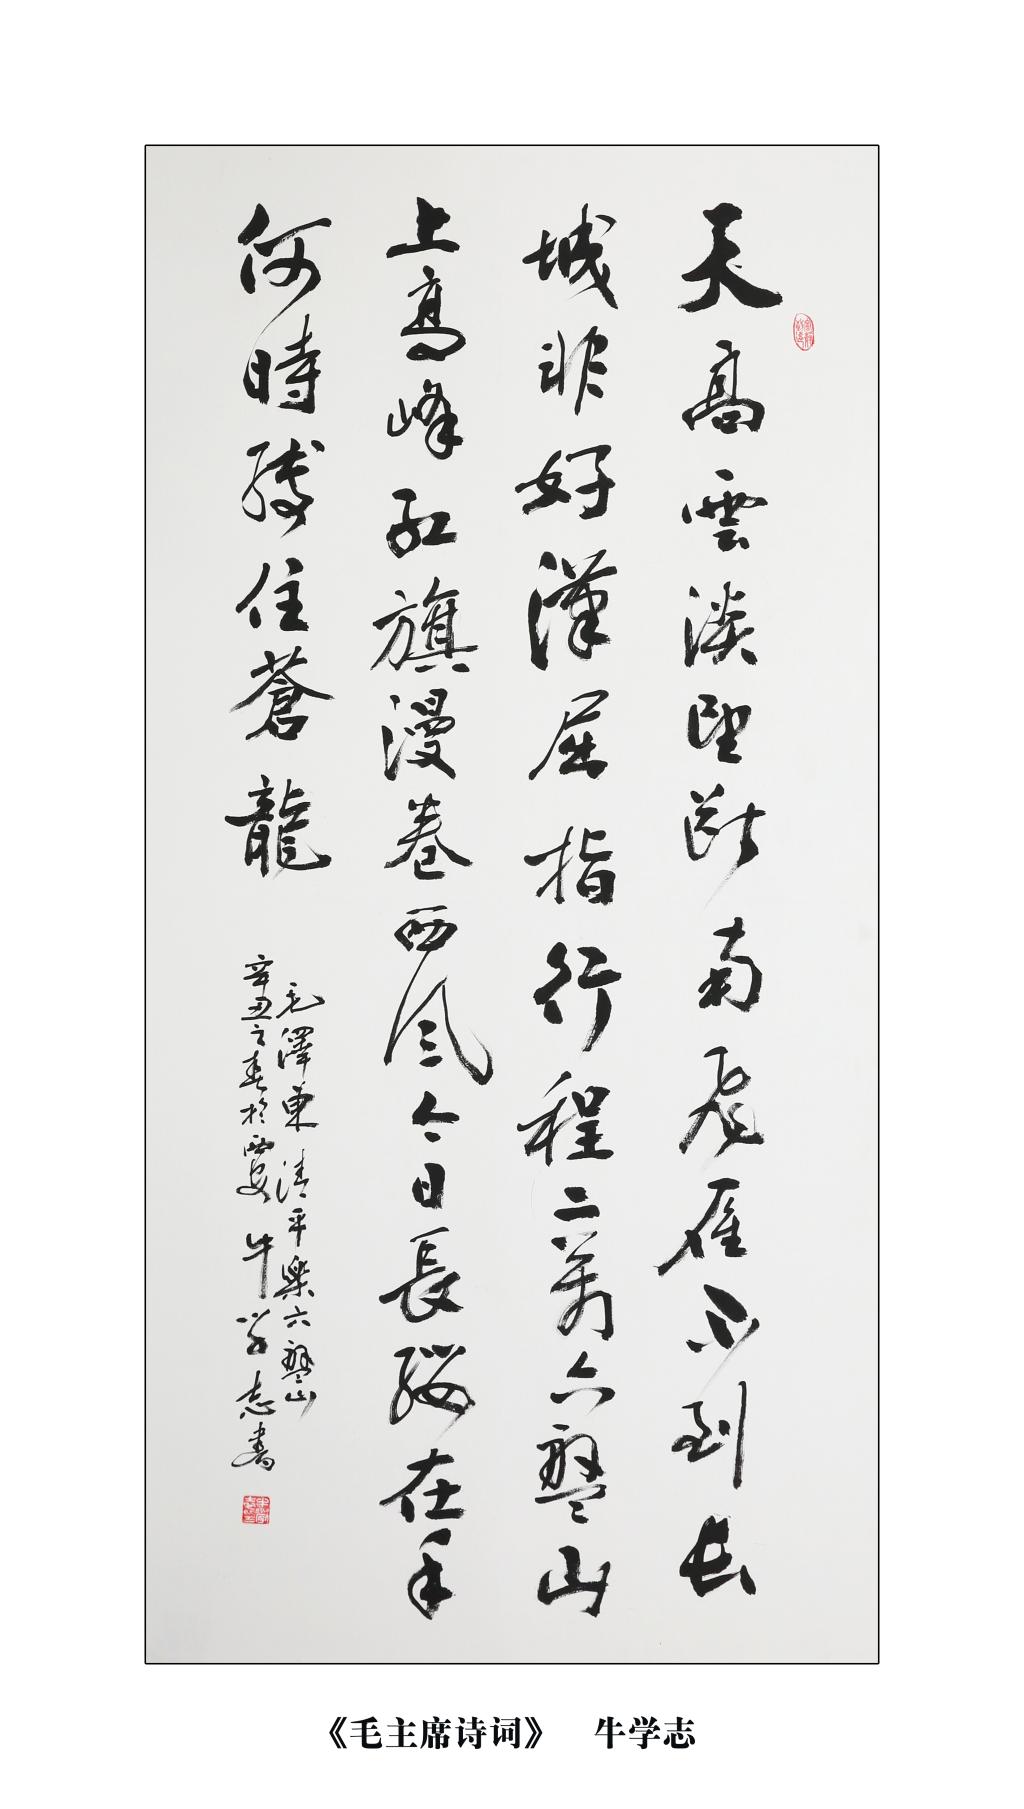 天高雲淡望斷南飛雁不到長
城非好漢屈指行程二萬六盤山
上高峰紅旗漫卷西风今日長纓在手
何時縛住蒼龍
毛澤東清平樂六盤山
辛丑之春於西安牛学志書
《毛主席诗词》 牛学志